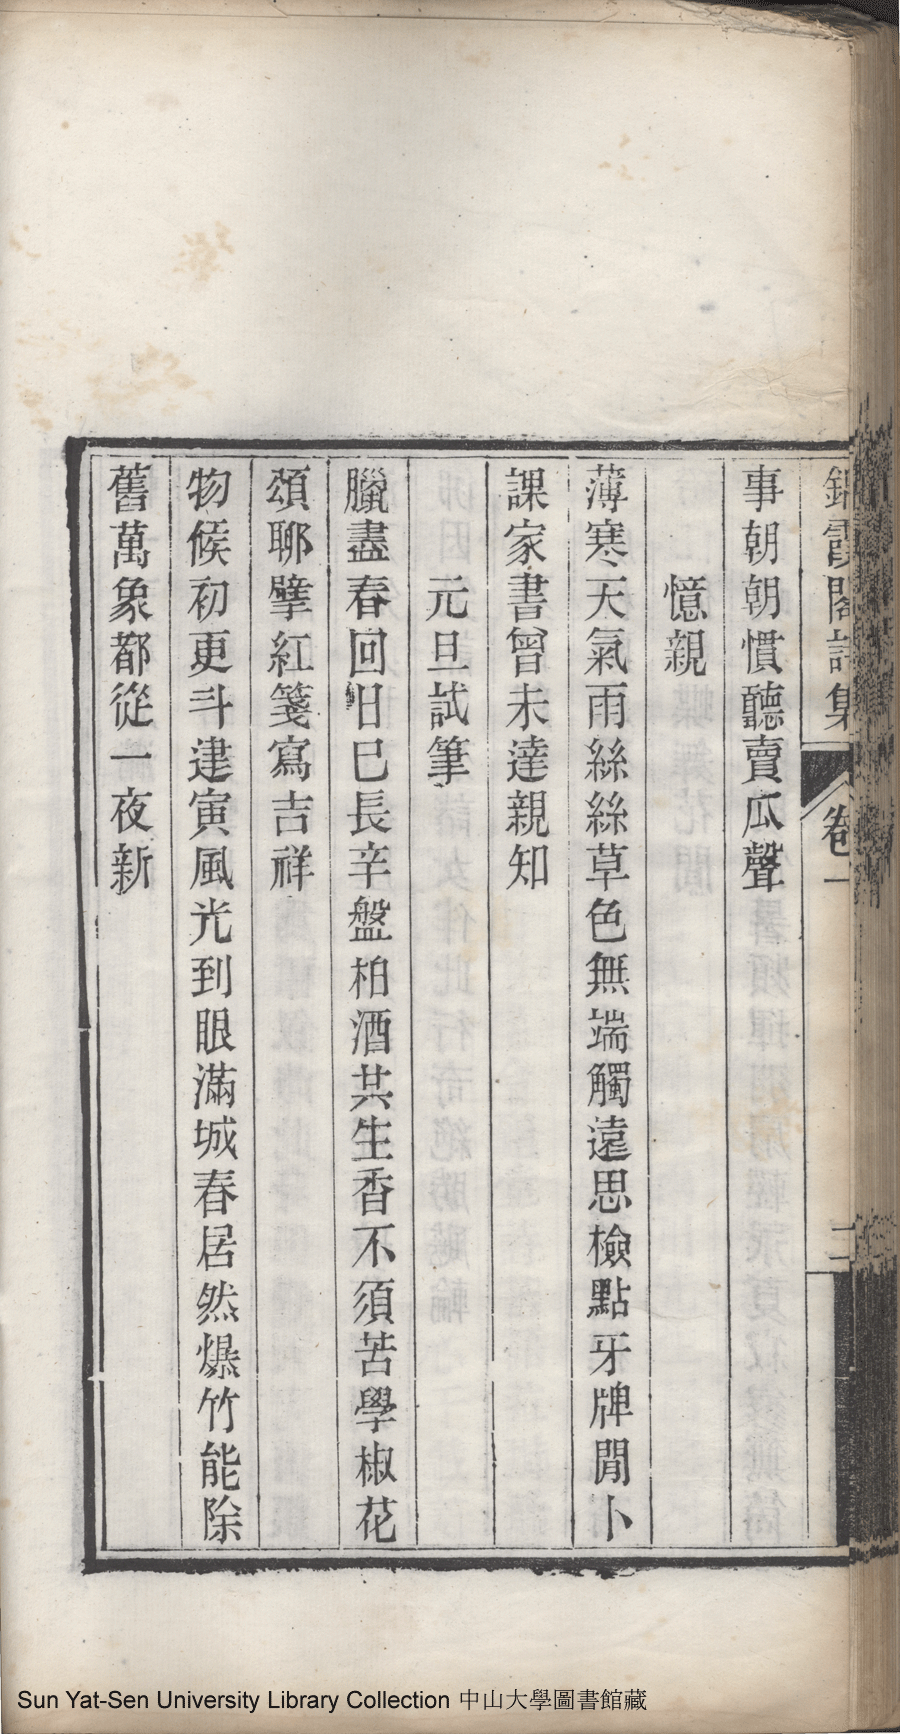 霞閣詩集 卷一 二
事朝朝慣聽賣瓜聲
憶親
薄寒天氣雨絲絲草色無端觸遠思檢點牙牌閒卜
課家書曾未達親知
元旦試筆
臘盡春回旧巳長辛盤柏酒共生香不須苦學椒花
頌聊擘紅箋寫吉祥
物候初更斗建寅風光到眼滿城春居然爆竹能除
舊萬象都從一夜新
Sun Yat-Sen University Library Collection 中山大學圖書館藏